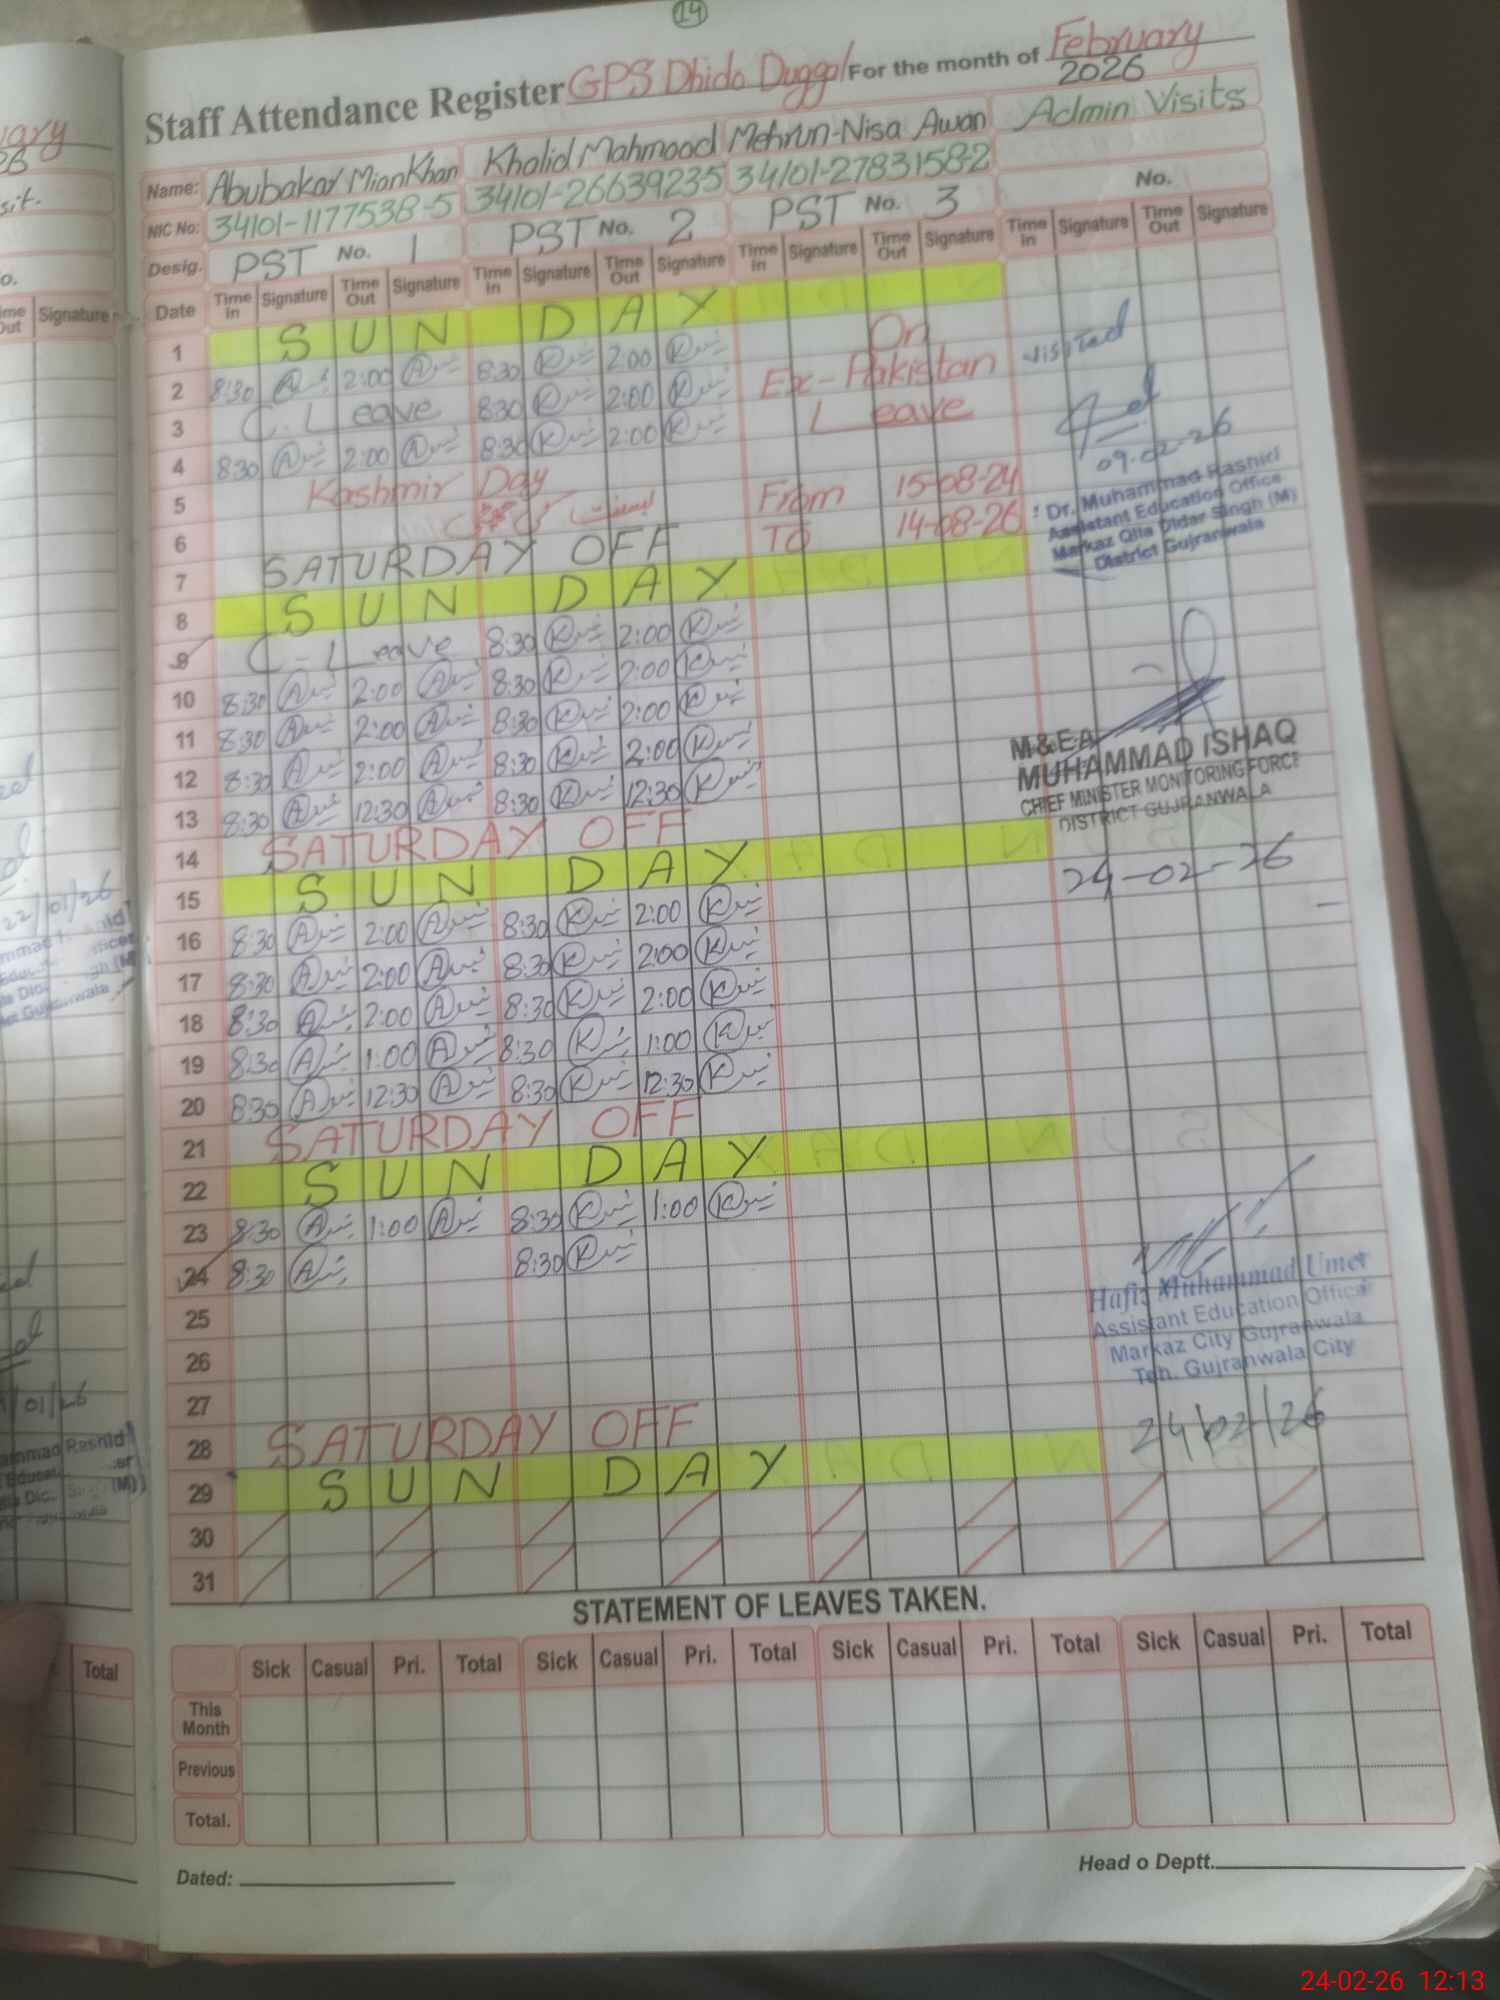 14
Staff Attendance Register GPS Dhido Duggal For the month of February
2026
Name: Abubakar Mian Khan Khalid Mahmood Mehrun-Nisa Awan Admin Visits
NIC No: 34101-1177538-5 34101-26639235 34101-27831582
Desig. PST No. 1 PST No. 2 PST No. 3 No.
Date Time In Signature Time Out Signature Time In Signature Time Out Signature Time In Signature Time Out Signature Time In Signature Time Out Signature
1 SUNDAY
2 8:30 2:00 8:30 2:00
3 C. Leave 8:30 2:00
4 8:30 2:00 8:30 2:00
5 Kashmir Day
6
7 SATURDAY OFF
8 SUNDAY
9 C-Leave 8:30 2:00
10 8:30 2:00 8:30 2:00
11 8:30 2:00 8:30 2:00
12 8:30 2:00 8:30 2:00
13 8:30 12:30 8:30 12:30
14 SATURDAY OFF
15 SUNDAY
16 8:30 2:00 8:30 2:00
17 8:30 2:00 8:30 2:00
18 8:30 2:00 8:30 2:00
19 8:30 1:00 8:30 1:00
20 8:30 12:30 8:30 12:30
21 SATURDAY OFF
22 SUNDAY
23 8:30 1:00 8:30 1:00
24 8:30 8:30
25
26
27
28 SATURDAY OFF
29 SUNDAY
30
31
On
Ex-Pakistan
Leave
From 15-08-24
To 14-08-26
visited
09-02-26
Dr. Muhammad Rashid
Assistant Education Office
Markaz Qila Didar Singh (M)
District Gujranwala
M&EA
MUHAMMAD ISHAQ
CHIEF MINISTER MONITORING FORCE
DISTRICT GUJRANWALA
24-02-26
Hafiz Muhammad Umer
Assistant Education Officer
Markaz City Gujranwala
Teh. Gujranwala City
24/02/26
STATEMENT OF LEAVES TAKEN.
Sick Casual Pri. Total Sick Casual Pri. Total Sick Casual Pri. Total Sick Casual Pri. Total
This Month
Previous
Total.
Dated: Head o Deptt.
24-02-26 12:13